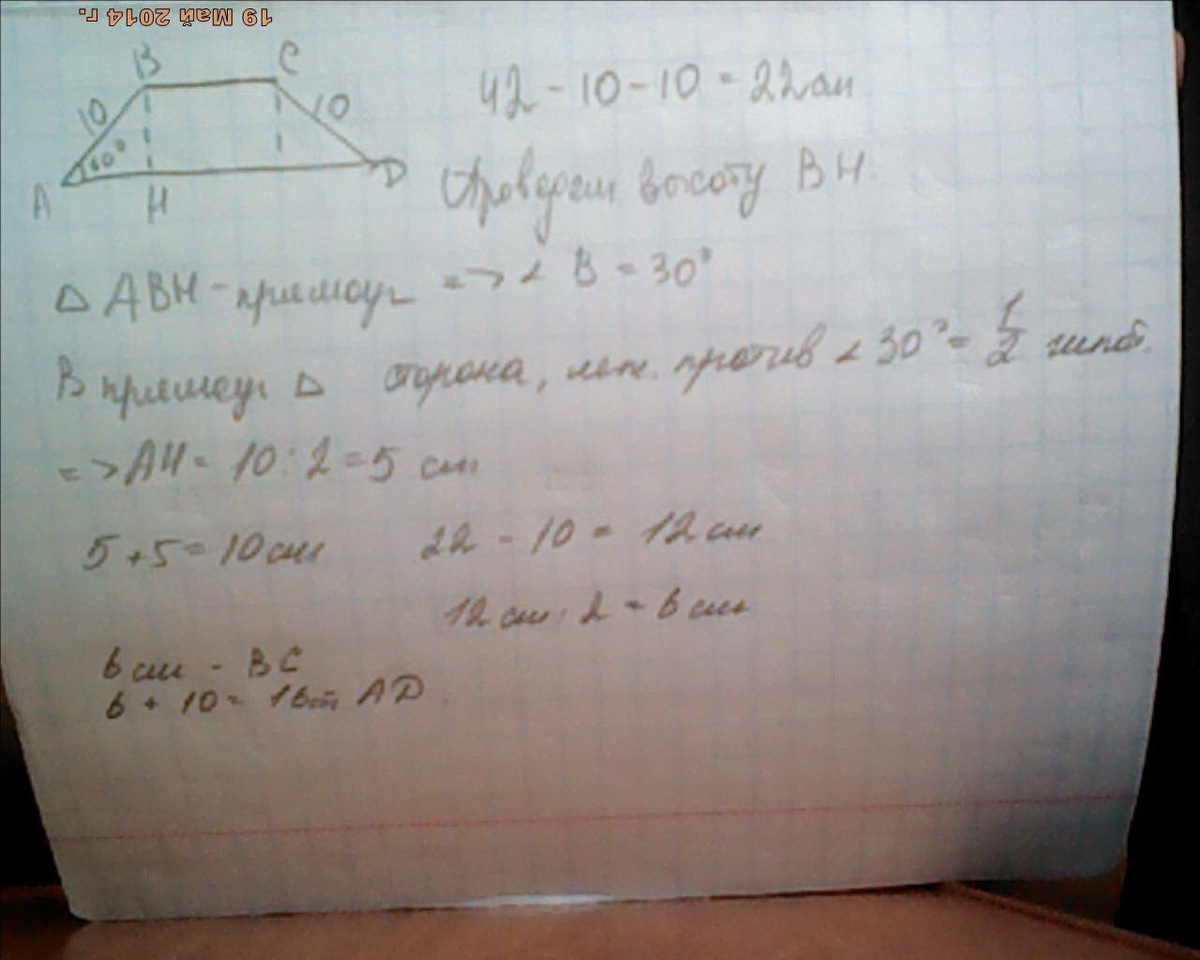 19 Май 2014 г.
B C
10 10
60°
A H D
42 - 10 - 10 = 22 см
Проведем высоту BH.
△ ABH - прямоуг => ∠ B = 30°
В прямоуг △ сторона, леж. против ∠ 30° = 1/2 гипот.
=> AH = 10 : 2 = 5 см
5 + 5 = 10 см 22 - 10 = 12 см
12 см : 2 = 6 см
6 см - BC
6 + 10 = 16 AD.